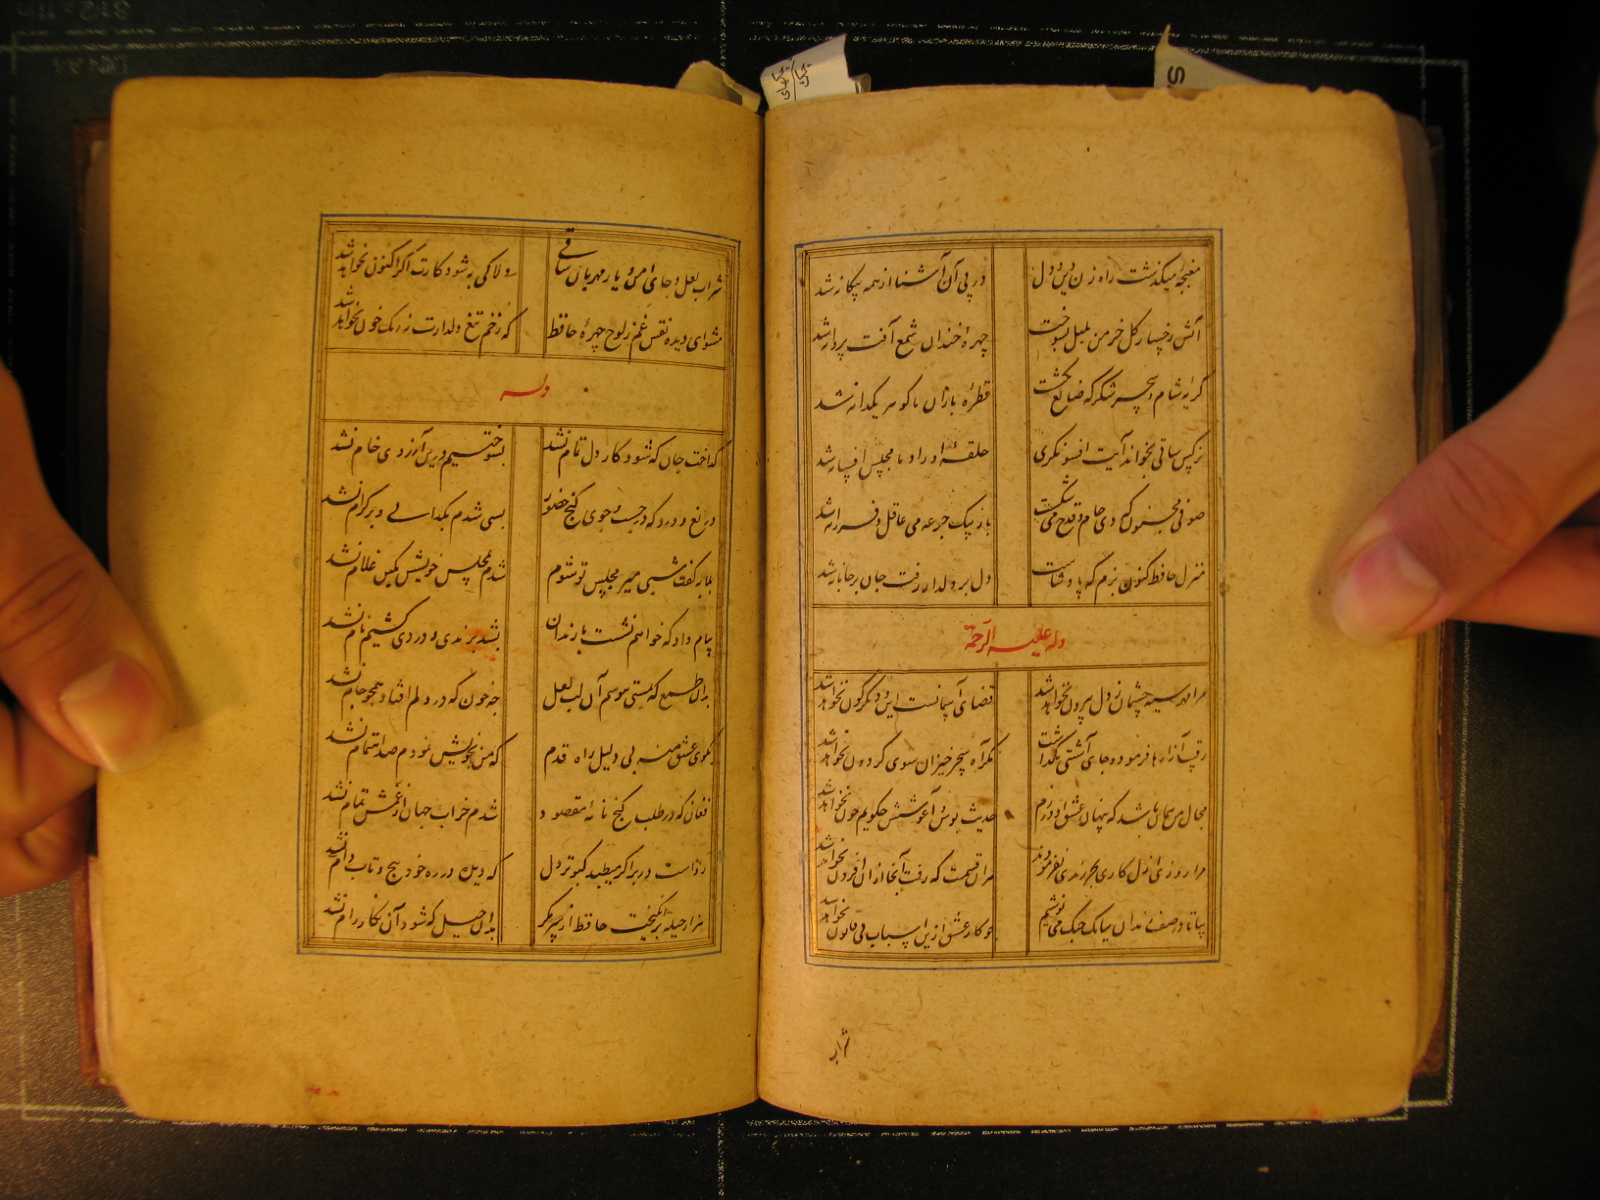 مغبچه میگذشت راه زن دین و دل در پی آن آشنا از همه بیگانه شد
آتش رخسار گل خرمن بلبل بسوخت چهرهٔ خندان شمع آفت پروانه شد
گریهٔ شام و سحر شکر که ضایع نگشت قطرهٔ باران ما گوهر یکدانه شد
نرگس ساقی بخواند آیت افسونگری حلقهٔ اوراد ما مجلس افسانه شد
صوفی مجنون که دی جام و قدح می شکست باز بیک جرعه می عاقل و فرزانه شد
منزل حافظ کنون بزم گه پادشاست دل بر دلدار رفت جان بر جانانه شد
وله علیه الرحمة
مرا مهر سیه چشمان ز دل بیرون نخواهد شد قضای آسمانست این و دیگرگون نخواهد شد
رقیب آزارها فرمود و جای آشتی نگذاشت مگر آه سحرخیزان سوی گردون نخواهد شد
مجال من همان باشد که پنهان عشق او ورزم حدیث بوس و آغوشش چگویم چون نخواهد شد
مرا روز ازل کاری بجز رندی نفرمودند هر آن قسمت که رفت آنجا از آن افزون نخواهد شد
بیا تا در صف رندان ببانگ چنگ می نوشیم که کار عشق ازین اسباب بی قانون نخواهد شد
شراب
شراب لعل و جای امن و یار مهربان ساقی دلا کی به شود کارت اگر اکنون نخواهد شد
مشو ای دیده نقش غم ز لوح چهرهٔ حافظ که زخم تیغ دلدارت ز رنگ خون نخواهد شد
وله
گداخت جان که شود کار دل تمام نشد بسوختیم درین آرزوی خام نشد
دریغ و درد که در جست و جوی گنج حضور بسی شدم بگدایی و بر کرام نشد
بلابه گفت شبی میر مجلس تو شوم شدم بمجلس خویشش کمین غلام نشد
پیام داد که خواهم نشست با رندان بشد برندی و دردی کشیم نام نشد
بدان طمع که بمستی ببوسم آن لب لعل چه خون که در دلم افتاد همچو جام نشد
بکوی عشق منه بی دلیل راه قدم که من بخویش نمودم صد اهتمام نشد
فغان که در طلب گنج نامهٔ مقصود شدم خراب جهان از غمش تمام نشد
رواست در بر اگر میطپد کبوتر دل که دید در ره خود پیچ و تاب دام نشد
هزار حیله برانگیخت حافظ از سر مکر بدان حیل که شود آن نگار رام نشد